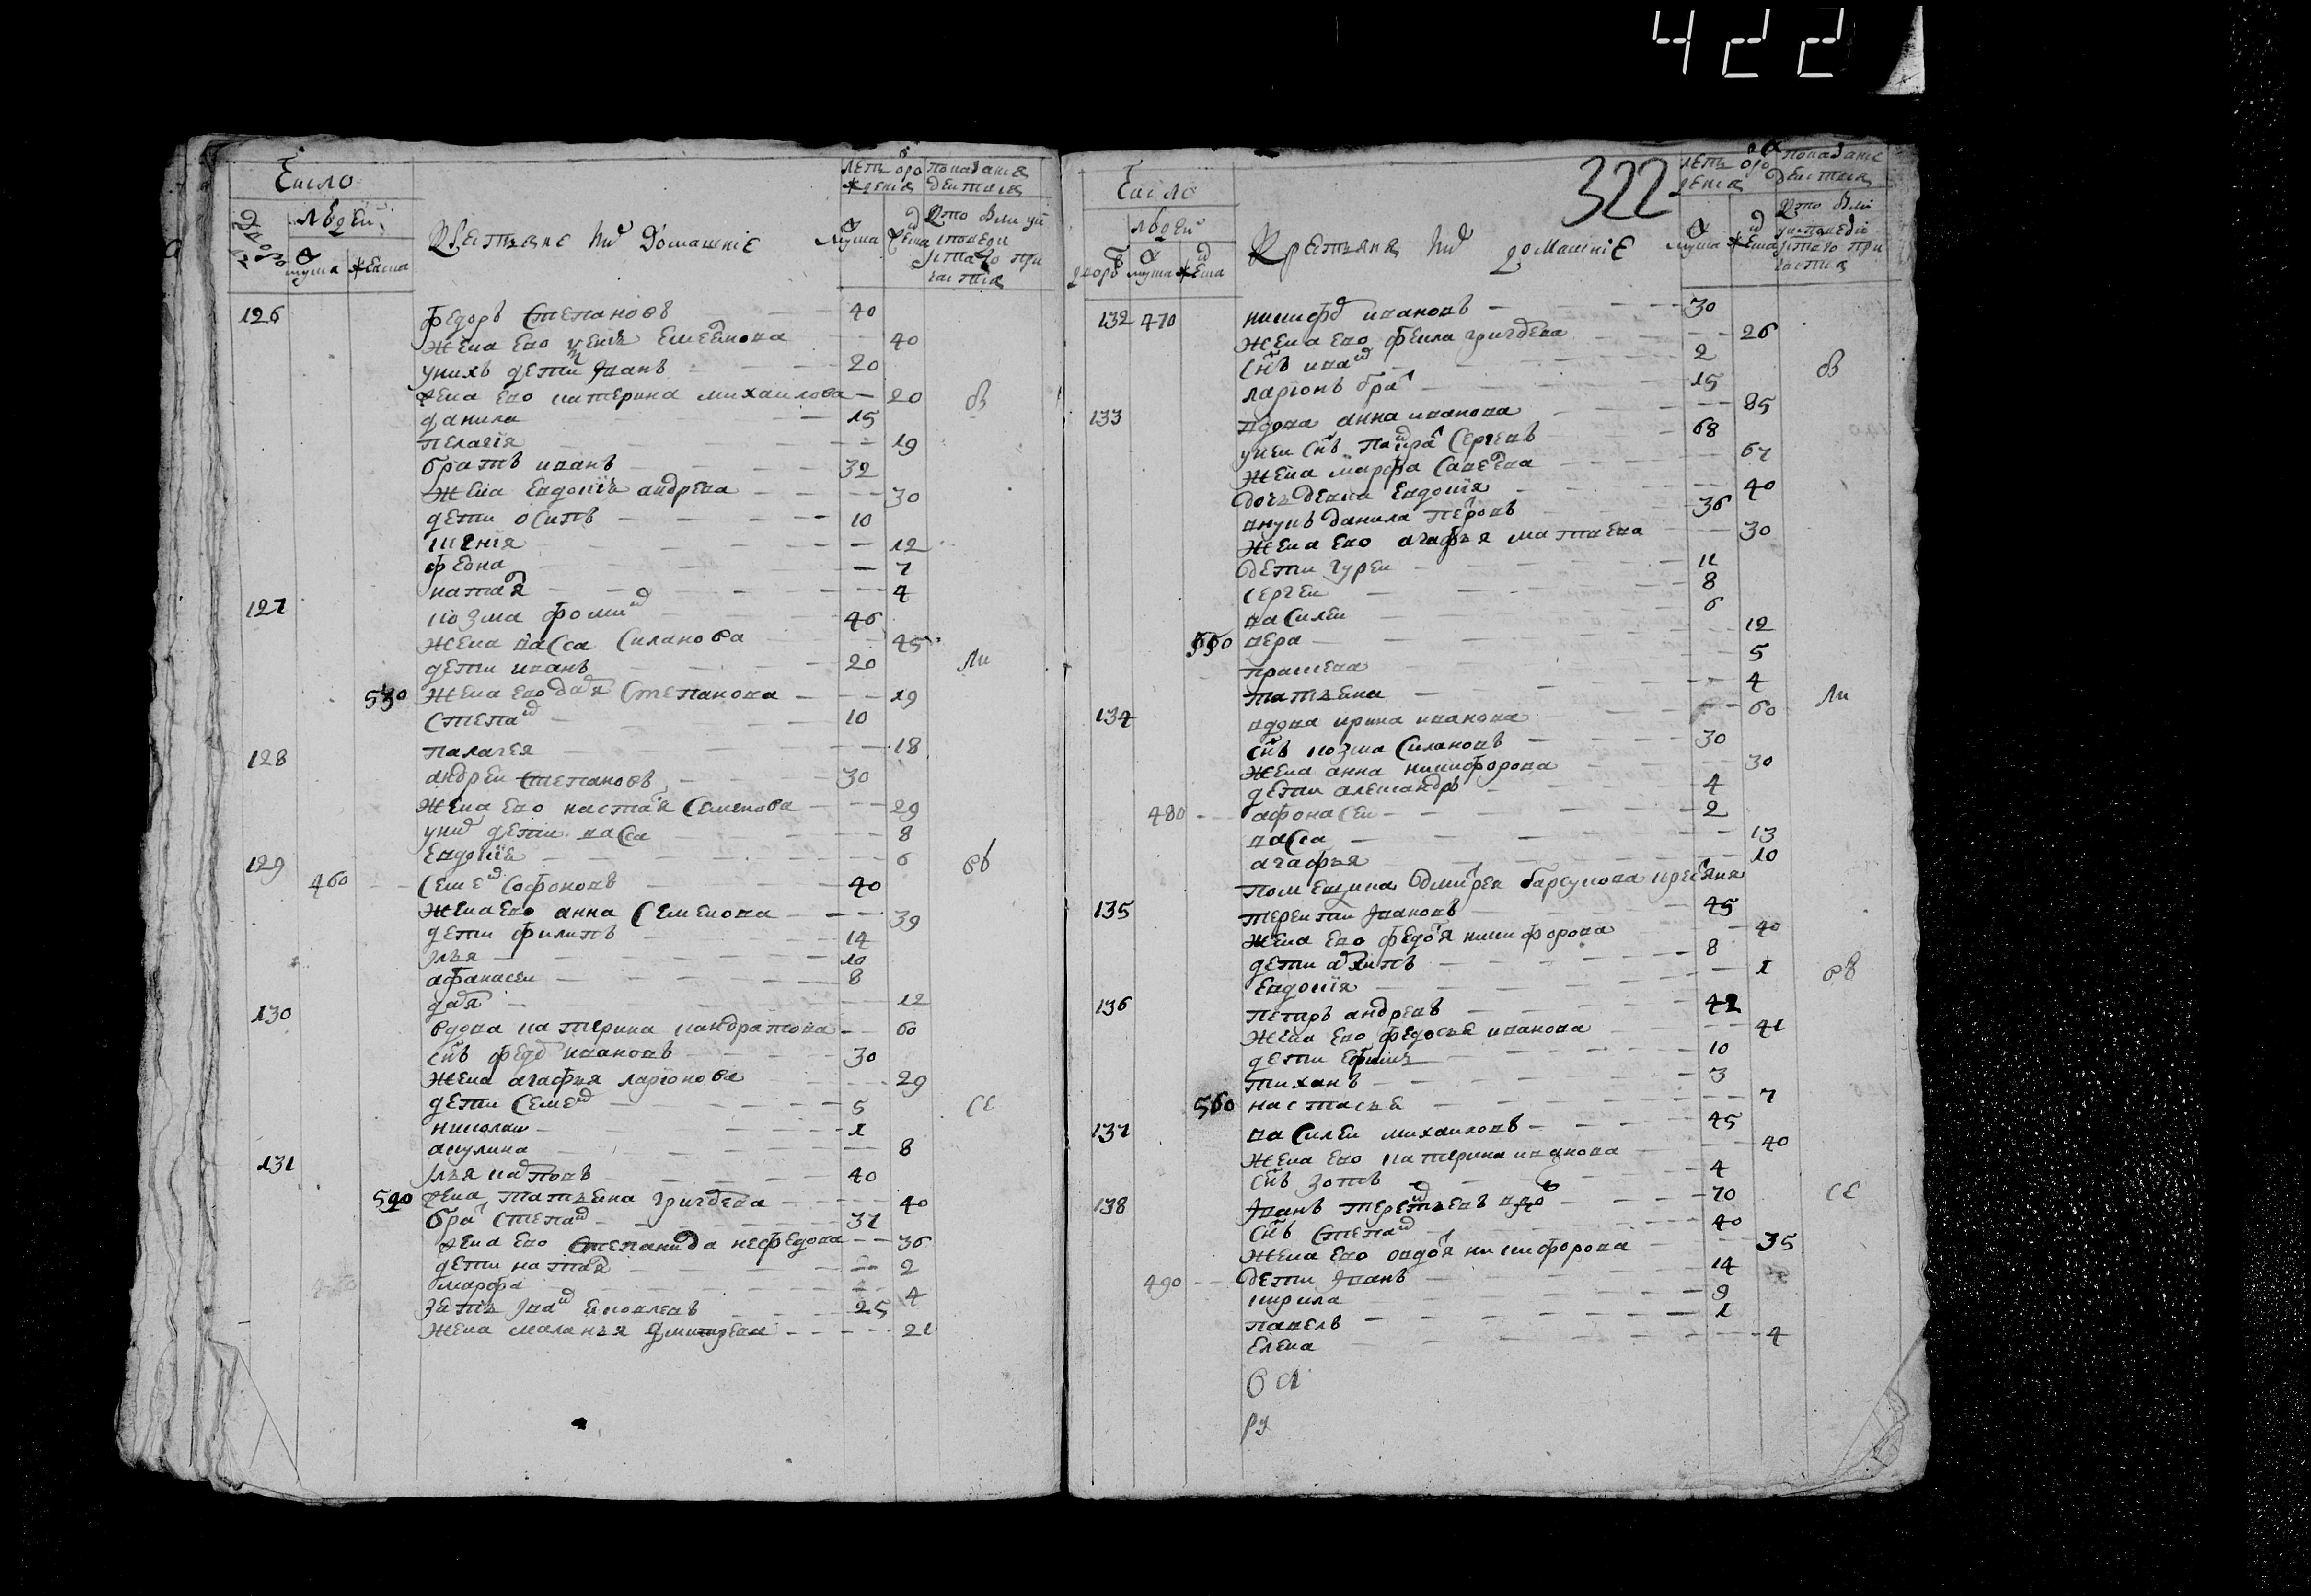 422
Число
людей
муска женска
Крестьяне ихъ Домашніе
летъ отъ рожденія
мужа жена
показание действа
Кто были у исповеди и святаго причастия
126 федоръ степановъ — 40
жена ево — 40
унихъ дети Іванъ — 20
жена ево катерина михаилова — 20
данила — 15
пелагія — 19
братъ иванъ — 32
жена евдокія андрева — 30
дети осипъ — 10
— 12
федна — 7
наталя — 4
127 козма фомин — 46
жена васса силанова — 45
дети иванъ — 20
530 жена ево даря степанова — 19
степан — 10
палагея — 18
128 андреи степановъ — 30
жена ево настася семенова — 29
у них дети васса — 8
евдокия — 6
129 460 семен софоновъ — 40
жена ево анна семенова — 39
дети филипъ — 14
Илья — 10
афанасеи — 8
даря — 12
130 вдова катерина кандратова — 60
снъ федо ивановъ — 30
жена агафья ларіонова — 29
дети семен — 5
николаи — 1
акулина — 8
131 Илья — 40
540 жена татьяна григорева — 40
брат степан — 37
жена ево степанида нефедова — 36
дети наталя — 2
марфа — 4
зять Іван яковлевъ — 25
жена маланья дмитрева — 21
322
Число
людей
дворов муска женска
Крестьяня их домашніе
летъ отъ рождения
показание действа
Кто были у исповеди и святаго причастия
132 470 никифор ивановъ — 30
жена ево фекла григорева — 26
снъ иван — 2
ларіонъ брат — 15
133 вдова анна иванова — 85
у неи снъ сергеевъ — 68
жена марфа савелева — 67
дочь девка евдокія — 40
внукъ данила петровъ — 36
жена ево агафья матвева — 30
дети гуреи — 11
сергеи — 8
василеи — 6
550 вера — 12
прасковя — 5
татьяна — 4
134 вдова ирина иванова — 60
снъ козма силановъ — 30
жена анна никифорова — 30
дети александръ — 4
480 афонасеи — 2
васса — 13
агафья — 10
помещика дмитрея барсукова крестьяня
135 терентеи Івановъ — 45
жена ево федося никифорова — 40
дети архипъ — 8
евдокія — 1
136 петаръ андревъ — 42
жена ево федосья иванова — 41
дети ефимъ — 10
тиханъ — 3
560 настасья — 7
137 василеи михаиловъ — 45
жена ево катерина иванова — 40
снъ зотъ — 4
138 Іванъ терентьевъ вдов — 70
снъ степан — 40
жена ево овдотя никифорова — 35
490 дети Іванъ — 14
кирила — 9
павелъ — 1
елена — 4